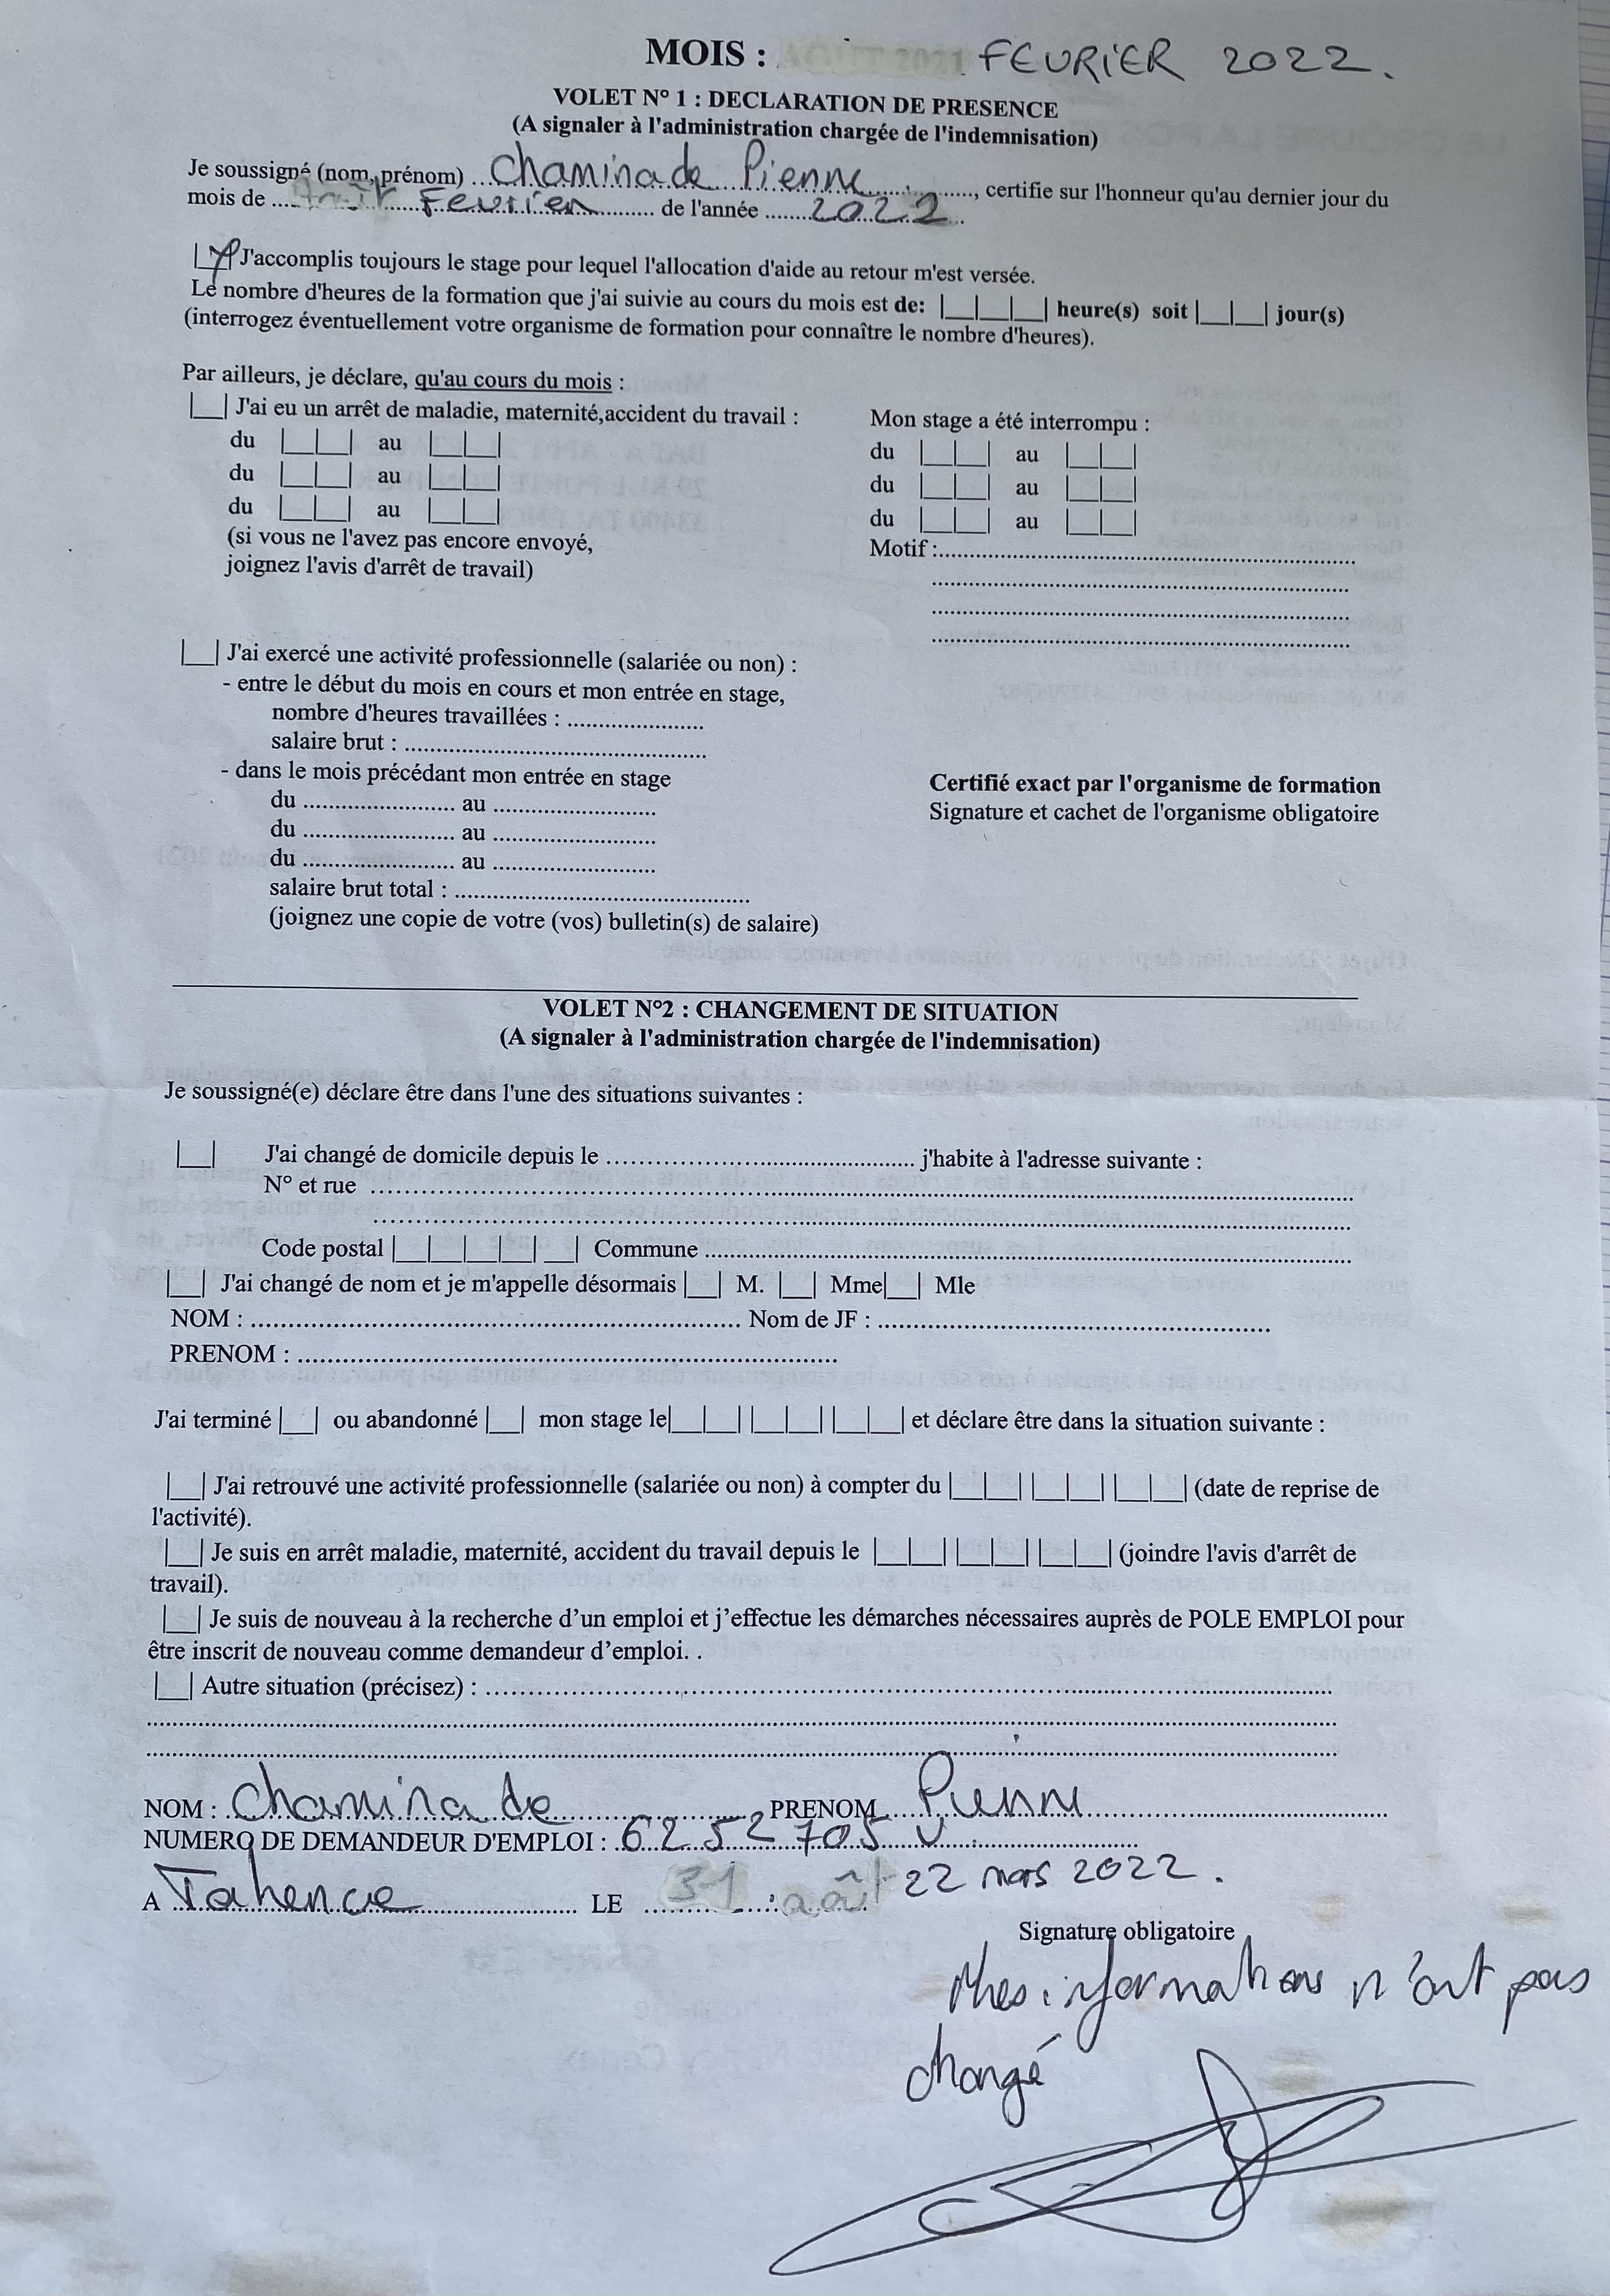 MOIS : AOUT 2021 FEVRIER 2022.
VOLET N° 1 : DECLARATION DE PRESENCE
(A signaler à l'administration chargée de l'indemnisation)
Je soussigné (nom, prénom) ... Chaminade Pierre ..., certifie sur l'honneur qu'au dernier jour du
mois de ... Fevrier ... de l'année ... 2022 ...
|X| J'accomplis toujours le stage pour lequel l'allocation d'aide au retour m'est versée.
Le nombre d'heures de la formation que j'ai suivie au cours du mois est de: |__|__|__| heure(s) soit |__|__| jour(s)
(interrogez éventuellement votre organisme de formation pour connaître le nombre d'heures).
Par ailleurs, je déclare, qu'au cours du mois :
|__| J'ai eu un arrêt de maladie, maternité,accident du travail :
du |__|__| au |__|__|
du |__|__| au |__|__|
du |__|__| au |__|__|
(si vous ne l'avez pas encore envoyé,
joignez l'avis d'arrêt de travail)
Mon stage a été interrompu :
du |__|__| au |__|__|
du |__|__| au |__|__|
du |__|__| au |__|__|
Motif :..........
|__| J'ai exercé une activité professionnelle (salariée ou non) :
- entre le début du mois en cours et mon entrée en stage,
nombre d'heures travaillées : ..........
salaire brut : ..........
- dans le mois précédant mon entrée en stage
du .......... au ..........
du .......... au ..........
du .......... au ..........
salaire brut total : ..........
(joignez une copie de votre (vos) bulletin(s) de salaire)
Certifié exact par l'organisme de formation
Signature et cachet de l'organisme obligatoire
VOLET N°2 : CHANGEMENT DE SITUATION
(A signaler à l'administration chargée de l'indemnisation)
Je soussigné(e) déclare être dans l'une des situations suivantes :
|__| J'ai changé de domicile depuis le .......... j'habite à l'adresse suivante :
N° et rue ..........
..........
Code postal |__|__|__|__|__| Commune ..........
|__| J'ai changé de nom et je m'appelle désormais |__| M. |__| Mme|__| Mle
NOM : .......... Nom de JF : ..........
PRENOM : ..........
J'ai terminé |__| ou abandonné |__| mon stage le|__|__| |__|__| |__|__| et déclare être dans la situation suivante :
|__| J'ai retrouvé une activité professionnelle (salariée ou non) à compter du |__|__| |__|__| |__|__| (date de reprise de
l'activité).
|__| Je suis en arrêt maladie, maternité, accident du travail depuis le |__|__| |__|__| |__|__| (joindre l'avis d'arrêt de
travail).
|__| Je suis de nouveau à la recherche d’un emploi et j’effectue les démarches nécessaires auprès de POLE EMPLOI pour
être inscrit de nouveau comme demandeur d’emploi. .
|__| Autre situation (précisez) : ..........
NOM : Chaminade PRENOM Pierre
NUMERO DE DEMANDEUR D'EMPLOI : 6252705 U
A Talence LE 31 août 22 mars 2022.
Signature obligatoire
Mes informations n'ont pas
changé